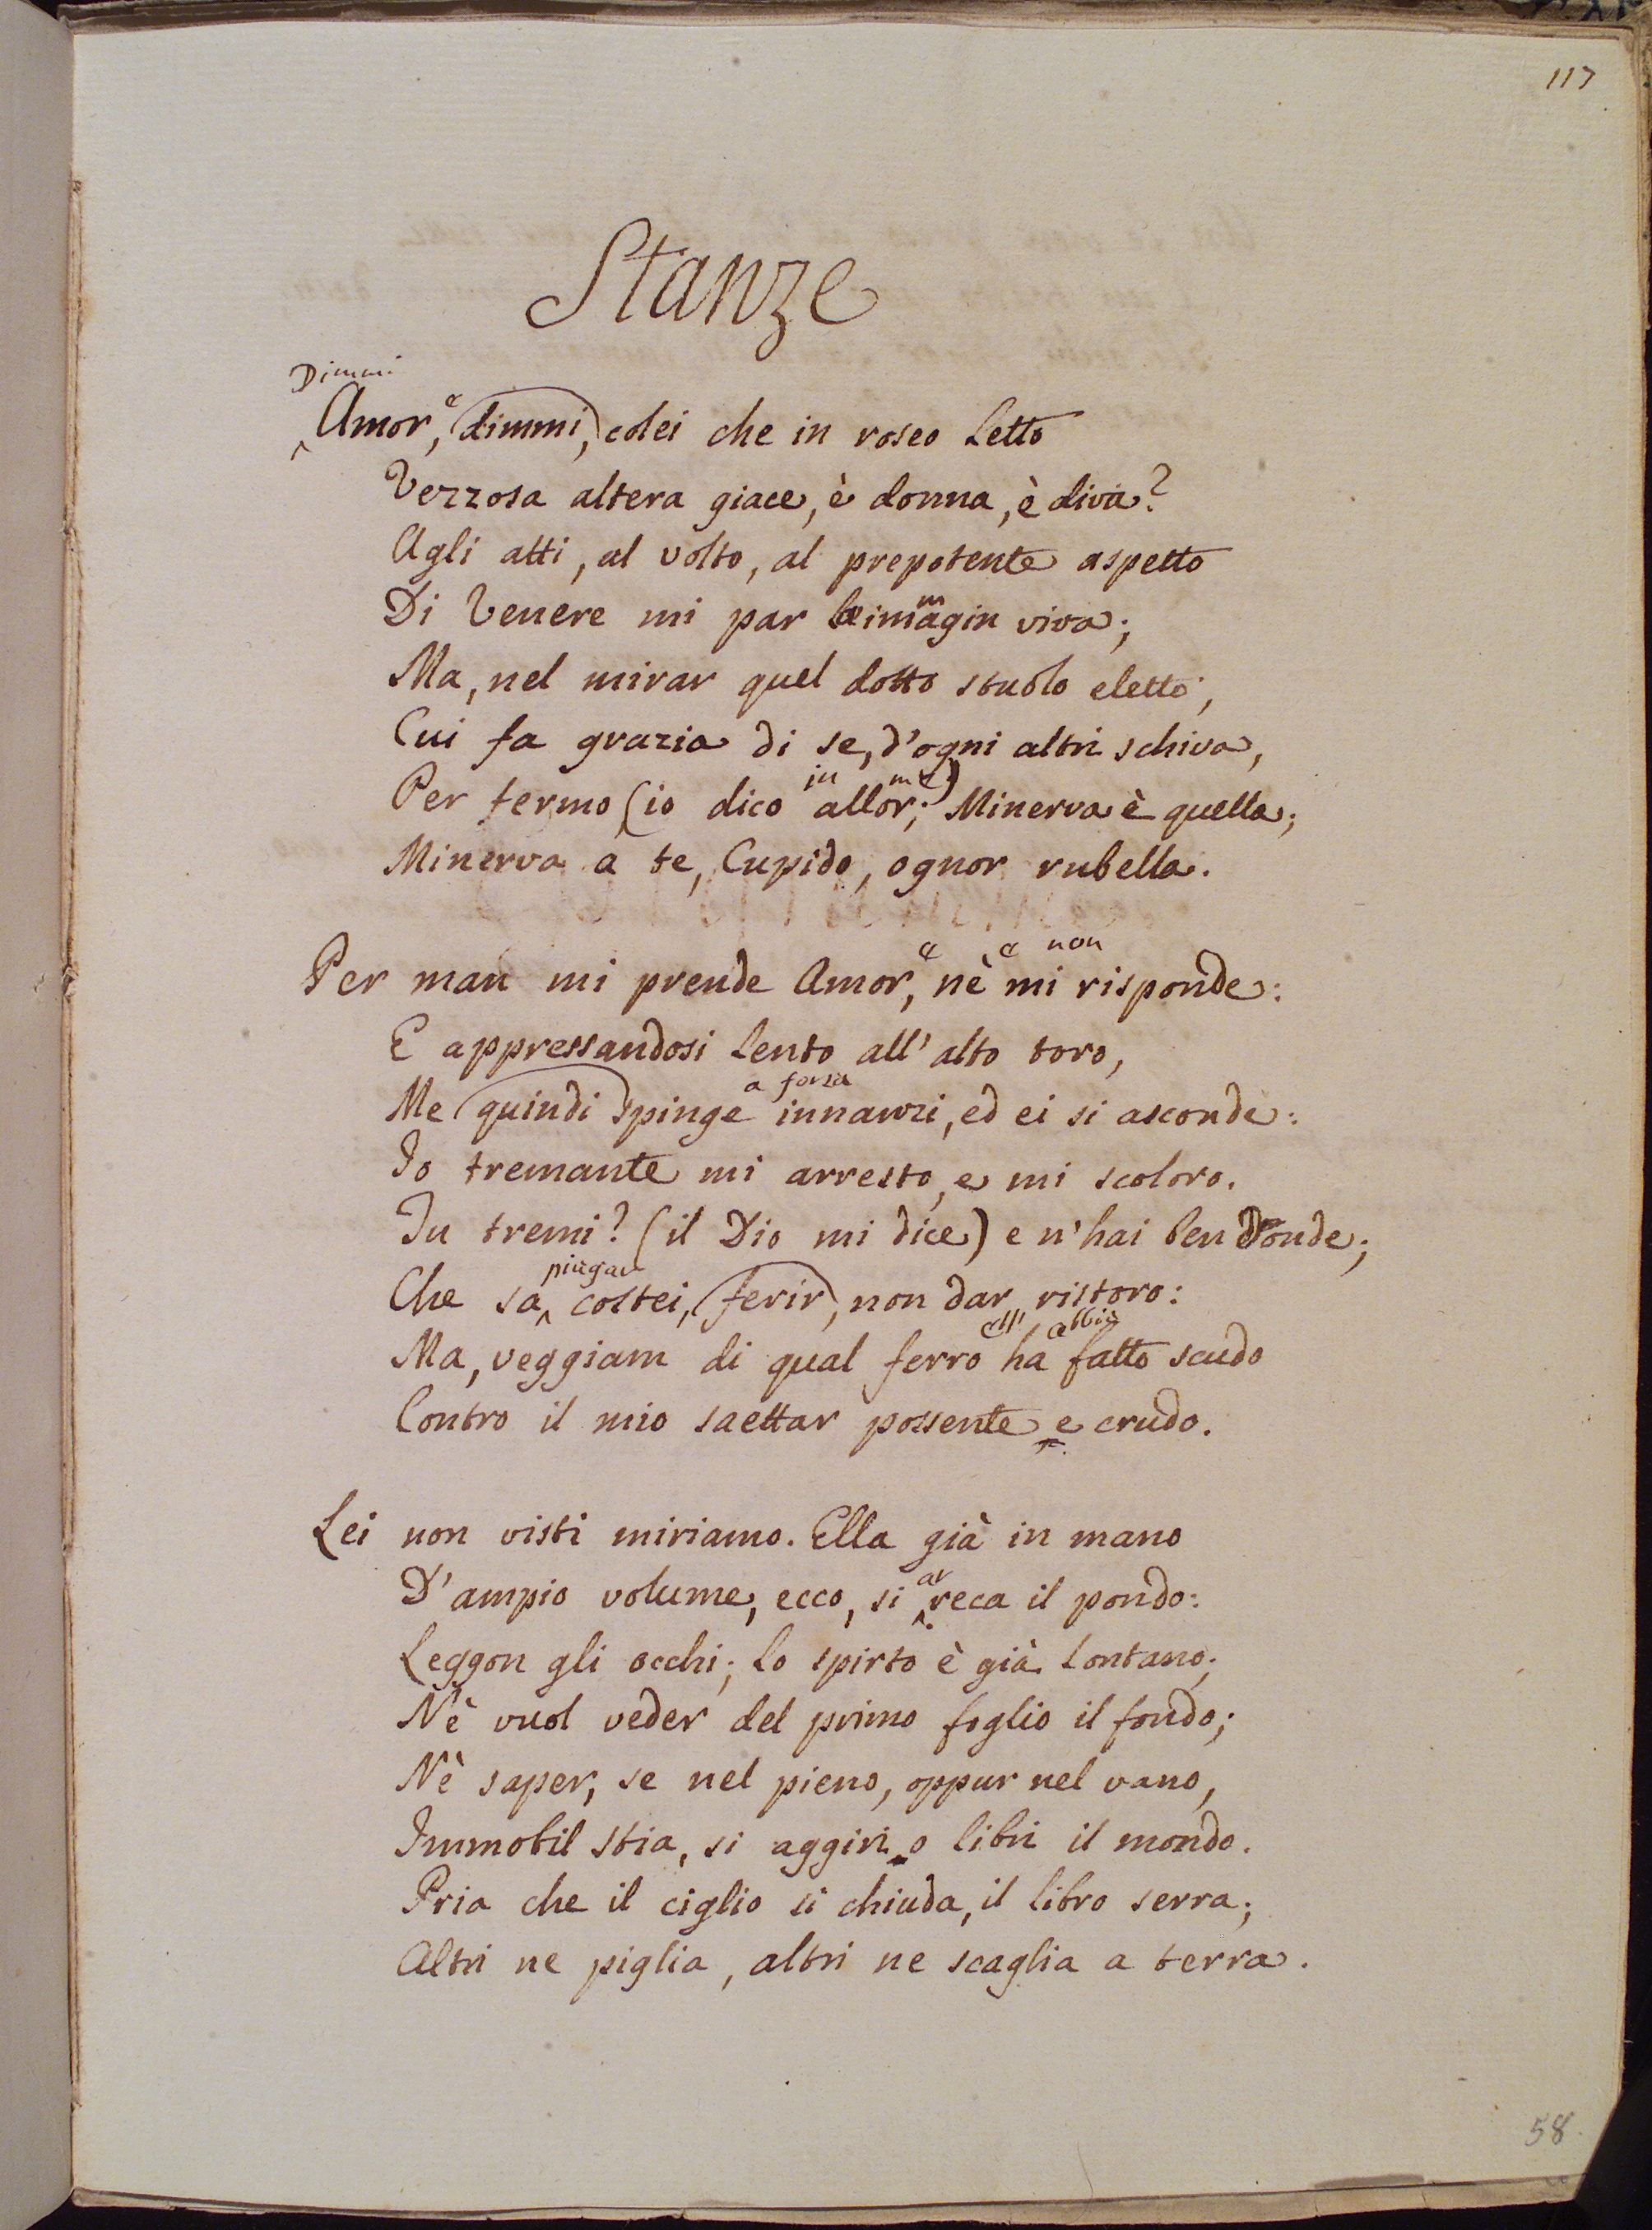 117
Stanze
Dimmi
Amor, e (dimmi,) colei che in roseo letto
Vezzosa altera giace, è donna, è diva?
Agli atti, al volto, al prepotente aspetto
Di Venere mi par l'immagin viva;
Ma, nel mirar quel dotto stuolo eletto,
Cui fa grazia di se, d'ogni altri schiva,
in me)
Per fermo (io dico allor; Minerva è quella;
Minerva a te, Cupido, ognor rubella.
e e non
Per man mi prende Amor, nè mi risponde:
E appressandosi lento all'alto toro,
a forza
Me (quindi) spinge innanzi, ed ei si asconde:
Io tremante mi arresto, e mi scoloro.
Tu tremi? (il Dio mi dice) e n'hai ben donde;
piagar
Che sa costei, (ferir), non dar ristoro:
ell' abbia
Ma, veggiam di qual ferro ha fatto scudo
Contro il mio saettar possente e crudo.
Lei non visti miriamo. Ella già in mano
ar
D'ampio volume, ecco, si reca il pondo:
Leggon gli occhi; lo spirto è già lontano;
Nè vuol veder del primo foglio il fondo;
Nè saper, se nel pieno, oppur nel vano,
Immobil stia, si aggiri o libri il mondo.
Pria che il ciglio si chiuda, il libro serra;
Altri ne piglia, altri ne scaglia a terra.
58